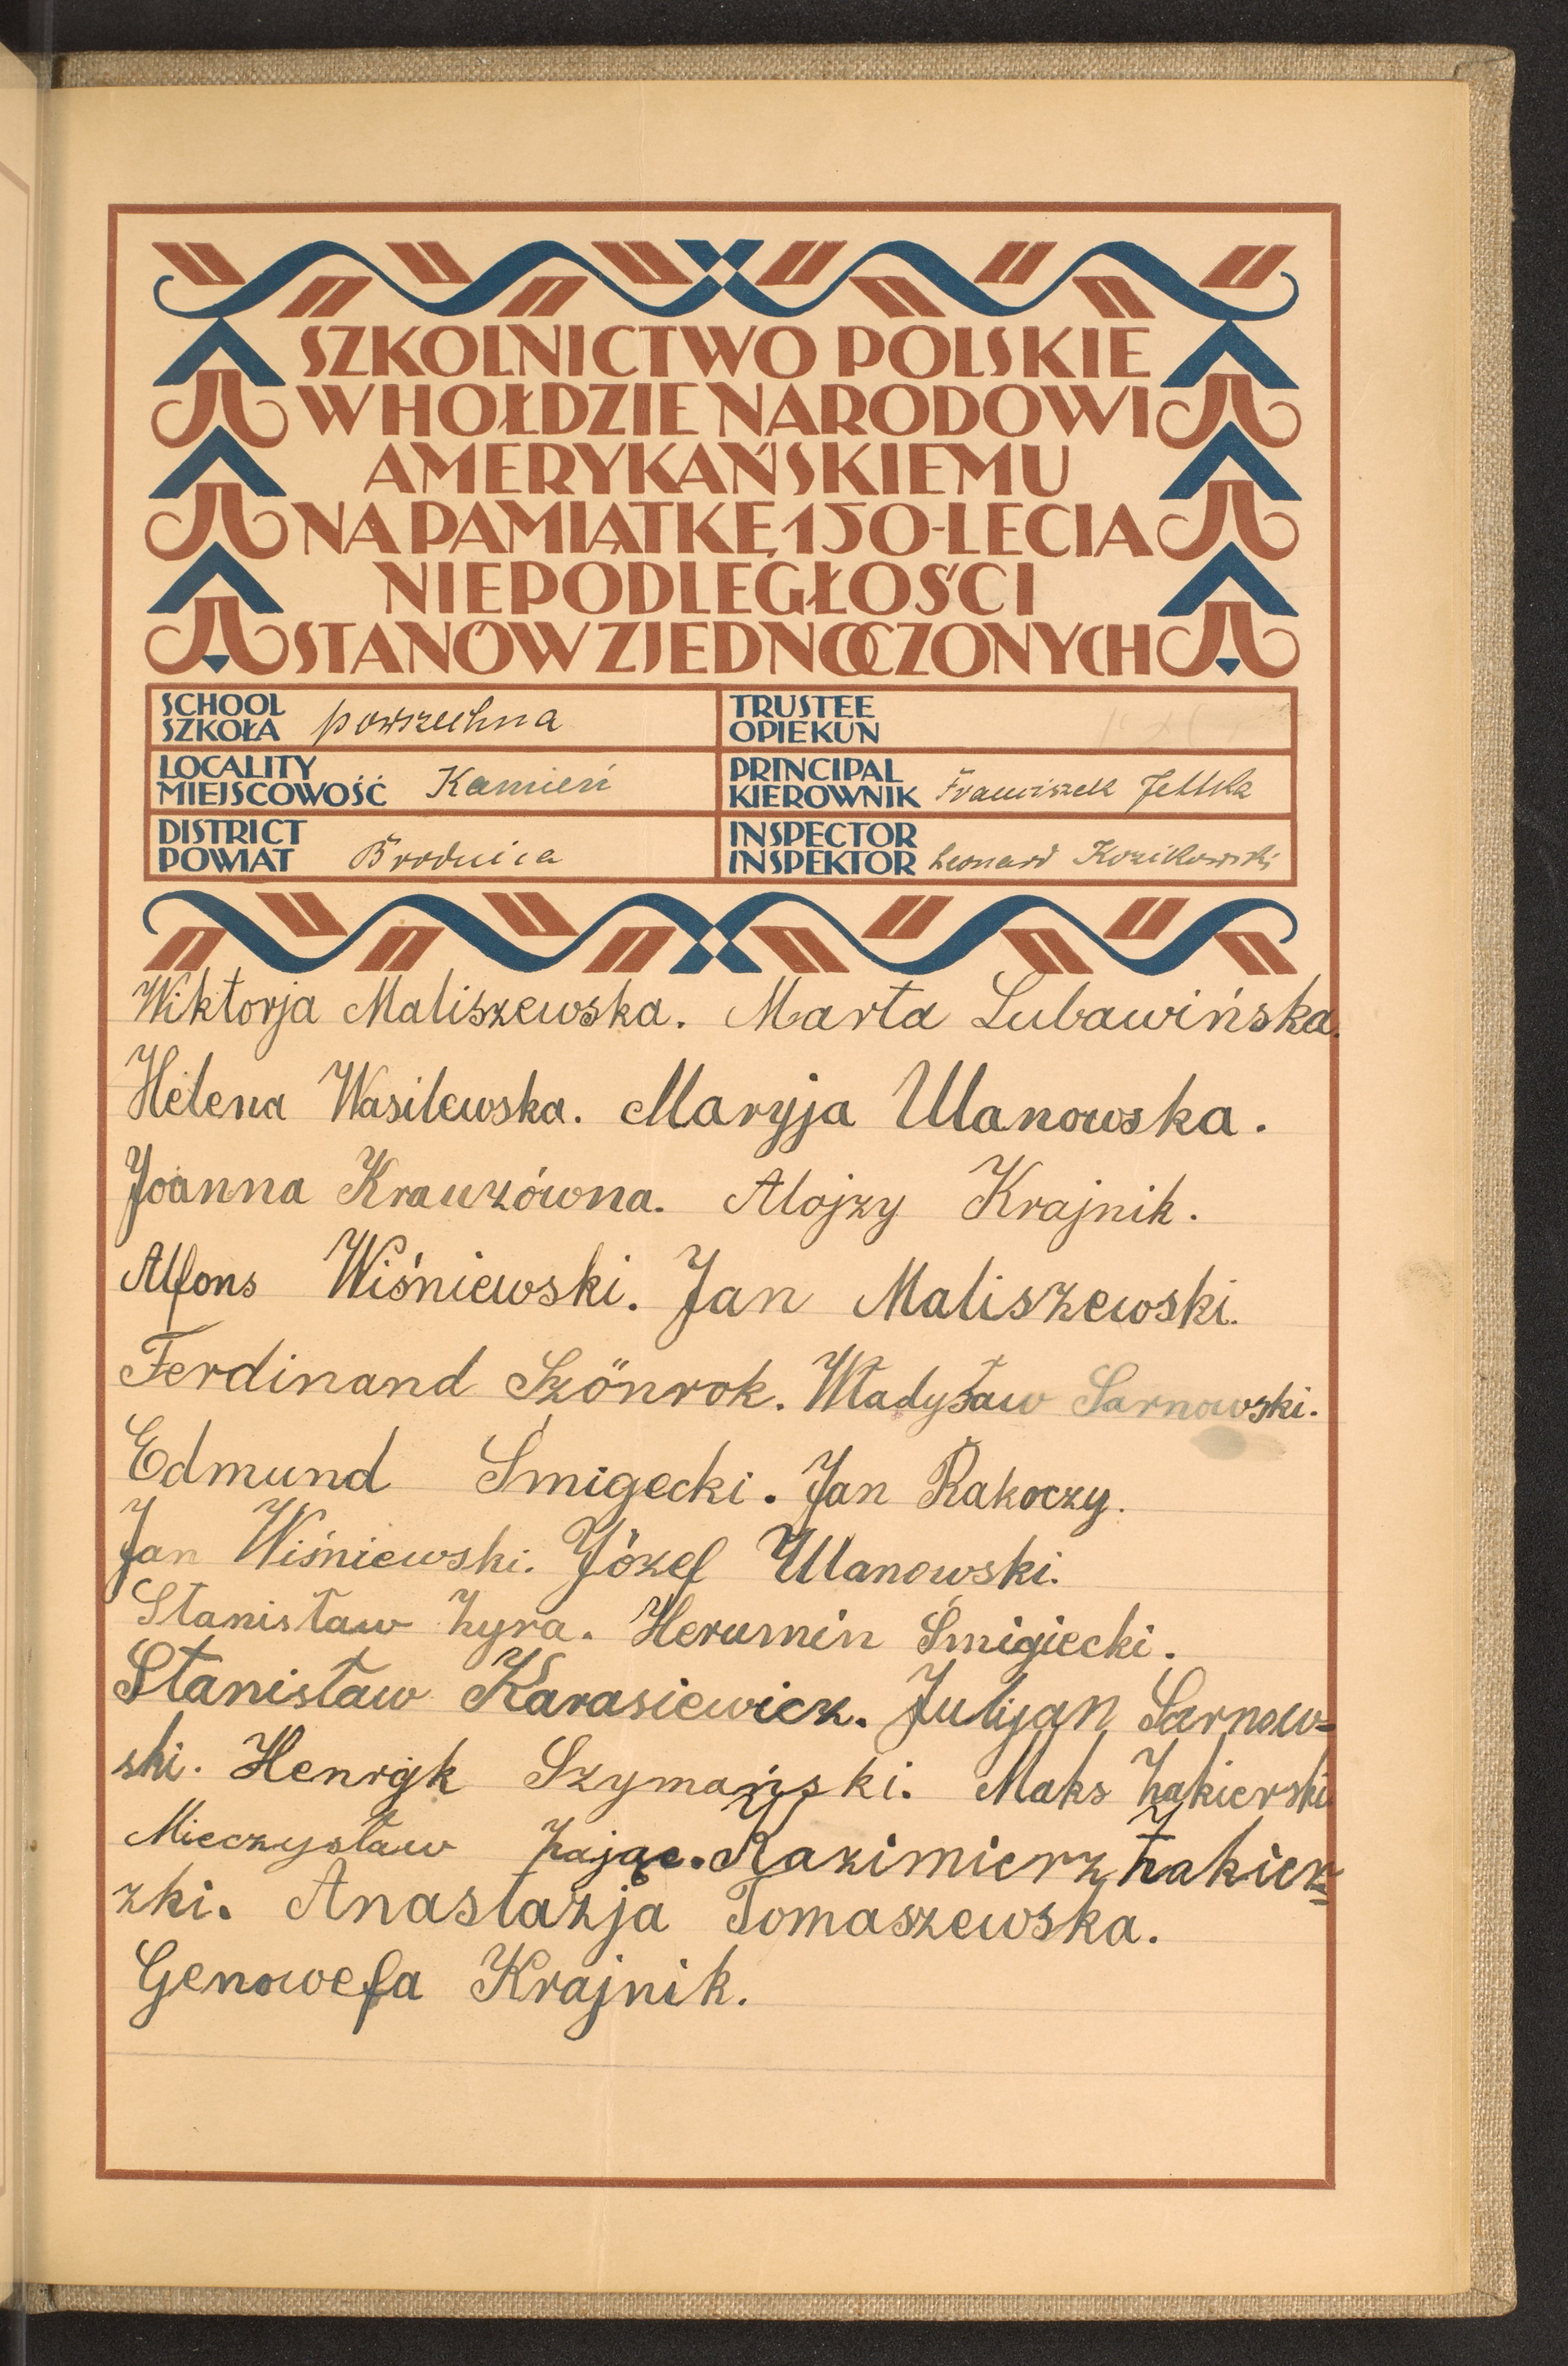 SZKOLNICTWO POLSKIE
W HOŁDZIE NARODOWI
AMERYKAŃSKIEMU
NA PAMIĄTKĘ 150-LECIA
NIEPODLEGŁOŚCI
STANÓW ZJEDNOCZONYCH
SCHOOL
SZKOŁA powszechna
TRUSTEE
OPIEKUN
LOCALITY
MIEJSCOWOŚĆ Kamień
PRINCIPAL
KIEROWNIK Franciszek
DISTRICT
POWIAT Brodnica
INSPECTOR
INSPEKTOR Leonard Kozikowski
Wiktorja Maliszewska. Marta Lubawińska.
Helena Wasilewska. Maryja Ulanowska.
Joanna Krauzówna. Alojzy Krajnik.
Alfons Wiśniewski. Jan Maliszewski.
Ferdinand Szönrok. Władysław Sarnowski.
Edmund Śmigecki. Jan Rakoczy.
Jan Wiśniewski. Józef Ulanowski.
Stanisław Zyra. Herumin Śmigiecki.
Stanisław Karasiewicz. Julijan Sarnow=
ski. Henryk Szymański. Maks Zakierski
Mieczysław Zając. Kazimierz Zakier=
zki. Anastazja Tomaszewska.
Genowefa Krajnik.